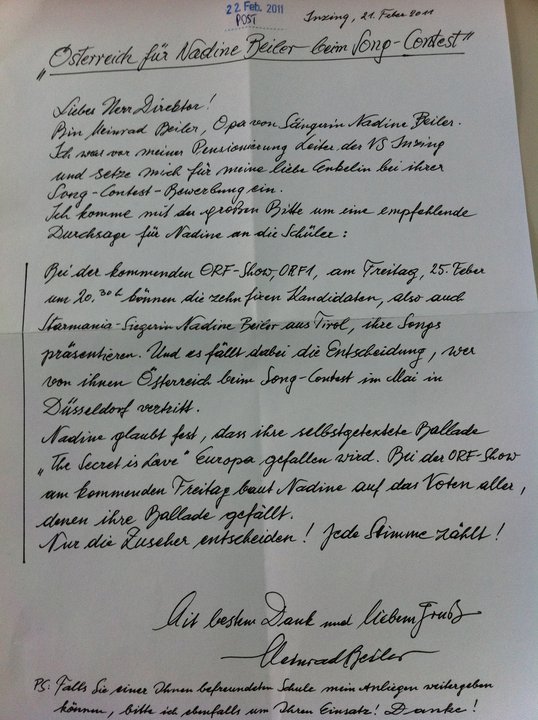 22. Feb. 2011
POST
Inzing, 21. Feber 2011
"Österreich für Nadine Beiler beim Song-Contest"
Lieber Herr Direktor!
Bin Meinrad Beiler, Opa von Sängerin Nadine Beiler.
Ich war vor meiner Pensionierung Leiter der VS Inzing
und setze mich für meine liebe Enkelin bei ihrer
Song-Contest-Bewerbung ein.
Ich komme mit der großen Bitte um eine empfehlende
Durchsage für Nadine an die Schüler:
Bei der kommenden ORF-Show, ORF1, am Freitag, 25. Feber
um 20.30h können die zehn fixen Kandidaten, also auch
Starmania-Siegerin Nadine Beiler aus Tirol, ihre Songs
präsentieren. Und es fällt dabei die Entscheidung, wer
von ihnen Österreich beim Song-Contest im Mai in
Düsseldorf vertritt.
Nadine glaubt fest, dass ihre selbstgetextete Ballade
"The Secret is Love" Europa gefallen wird. Bei der ORF-Show
am kommenden Freitag baut Nadine auf das Voten aller,
denen ihre Ballade gefällt.
Nur die Zuseher entscheiden! Jede Stimme zählt!
Mit bestem Dank und liebem Gruß
Meinrad Beiler
PS: Falls Sie einer Ihnen befreundeten Schule mein Anliegen weitergeben
können, bitte ich ebenfalls um Ihren Einsatz! Danke!